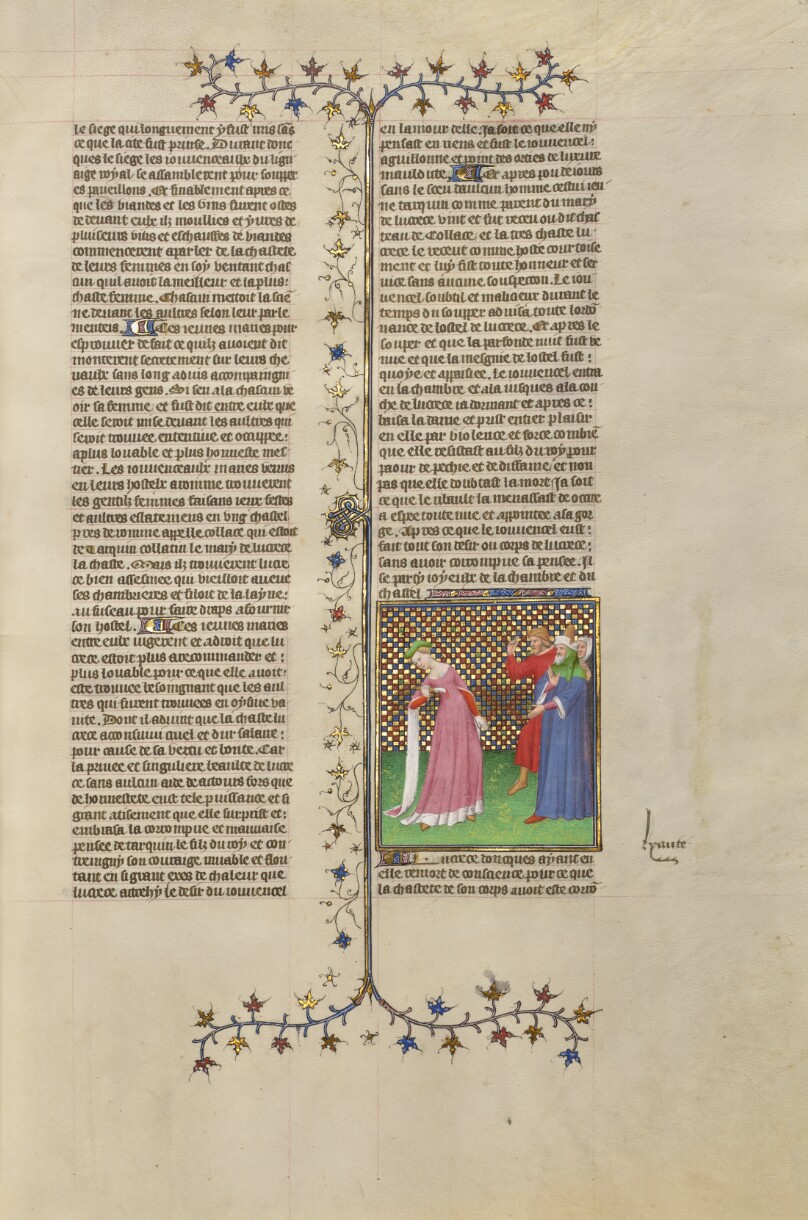 le siege qui longuement y fust mis sãs
ce que la cite fust prinse. Durant donc
ques le siege les iouuenceaulx du lign
aige royal se assamblerent pour soupper
es paueillons. Et finablement apres ce
que les biandes et les vins furent ostes
de deuant eulx ilz moullies et yures de
pluiseurs vins et eschauffes de biandes
commencerent a parler de la chastete
de leurs femmes en soy ventant chas
cun quil auoit la meilleur et la plus
chaste femme. Chascun mettoit la siẽ
ne deuant les aultres selon leur parle
mens. Ces ieunes maries pour
esprouuer de fait ce quilz auoient dit
monterent secretement sur leurs che
uaulx sans long aduis accompaigni
es de leurs gens. Si sen ala chascun ve
oir sa femme et fust dit entre eulx que
celle seroit mise deuant les aultres qui
seroit trouuee ententiue et occupee
a plus louable et plus honneste mes
tier. Les iouuenceaulx maries venus
en leurs hostelz a romme trouuerent
les gentilz femmes faisans ieux festes
et aultres esbatemens en vng chastel
pres de romme appelle collace qui estoit
de Tarquin collatin le mary de lucrece
la chaste. Mais ilz trouuerent lucre
ce bien assesmee qui vieilloit auecq
ses chambrieres et filoit de la layne
au fuseau pour faire draps a fournir
son hostel. Ces ieunes maries
entre eulx iugerent et a droit que lu
crece estoit plus a recommander et
plus louable pour ce que elle auoit
este trouuee besoingnant que les aul
tres qui furent trouuees en oysiue va
nite. Dont il aduint que la chaste lu
crece acconsuiui cruel et dur salaire
pour cause de sa vertu et bonte. Car
la priuee et singuliere beaulte de lucre
ce sans aulcun aide de actours fors que
de honnestete eust tele puissance et si
grant atisement que elle surprist et
embrasa la corrompue et mauuaise
pensee de tarquin le filz du roy et con
treingny son couraige muable et flou
tant en si grant exes de chaleur que
lucrece actrehy le desir du iouuencel
en lamour delle. Ja soit ce que elle ny
pensast en riens et fust le iouuencel
aguillonne et point des orties de luxure
mauldite. Et apres pou de iours
sans le sceu daulcun homme cestui ieu
ne tarquin comme parent du mary
de lucrece vint et fut receu ou dit chas
teau de Collace et la tres chaste lu
crece le receut comme hoste courtoise
ment et luy fist toute honneur et ser
uice sans aucune souspecon. Le iou
uencel soubtil et malicieux durant le
temps du soupper aduisa toute lordõ
nance de lostel de lucrece. Et apres le
souper et que la parfonde nuit fust ve
nue et que la mesgnie de lostel fust
quoye et appaisee. Le iouuencel entra
en la chambre et ala iusques a la cou
che de lucrece ia dormant et apres ce
baisa la dame et prist entier plaisir
en elle par violence et force combiẽ
que elle resistast au filz du roy pour
paour de pechie et de diffame et non
pas que elle doubtast la mort Ja soit
ce que le ribault la menassast de occire
a espee toute nue et appointee a sa gor
ge. Apres ce que le iouuencel eust
fait tout son desir ou corps de lucrece
sans auoir corrompue sa pensee. Il
se party ioyeux de la chambre et du
chastel
Lucrece doncques ayant en
elle remort de conscience pour ce que
la chastete de son corps auoit este corrõ